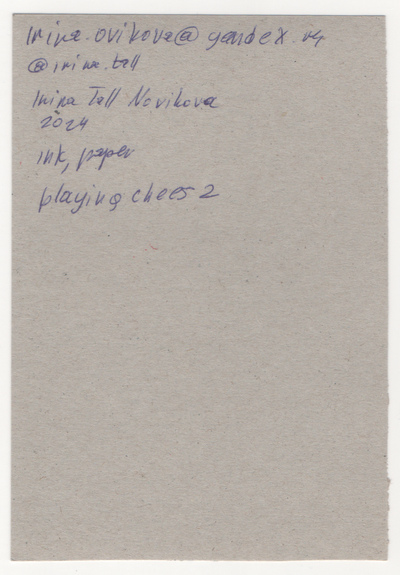 irina.ovikova@yandex.ru
@irina.tall
Irina Tall Novikova
2024
ink, paper
playing chees 2